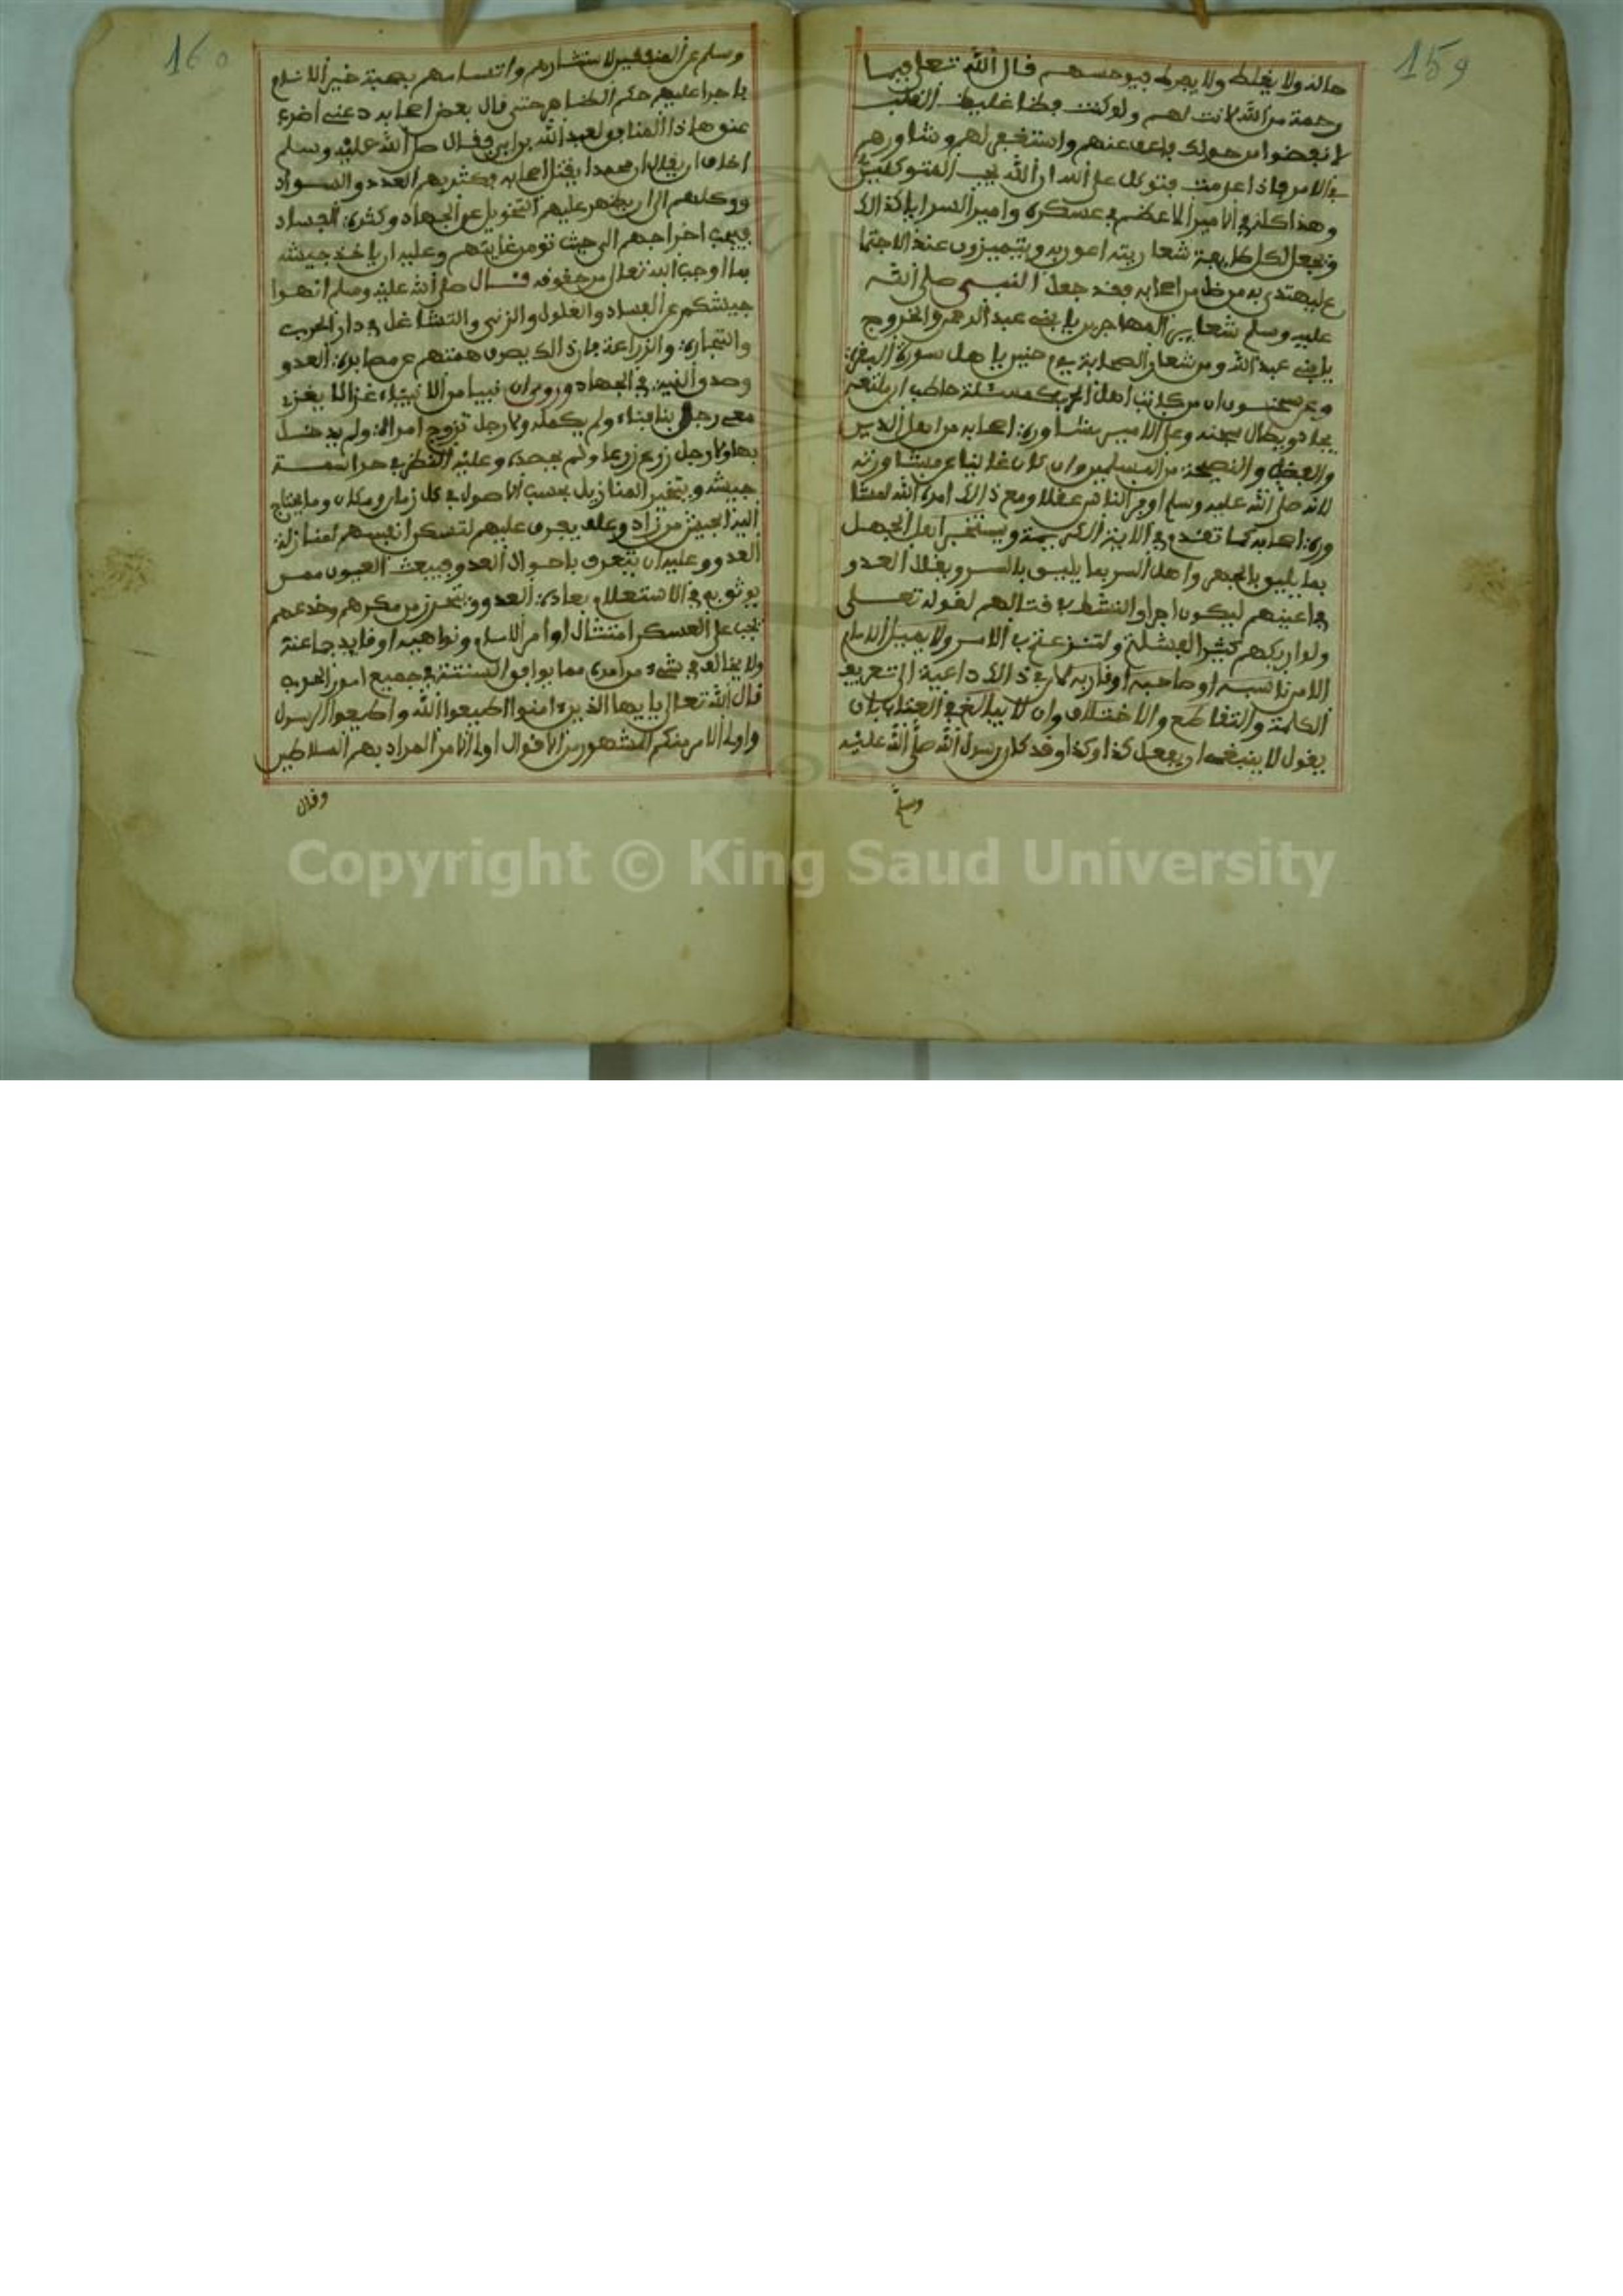 159
حاله ولا يغلظ ولا يفرط فيوحسهم قال الله تعلى فبما
رحمة من الله لانت لهم ولو كنت فظا غليظ القلب
لانفضوا من حولك فاعف عنهم واستغفر لهم وشاورهم
في الامر فاذا عزمت فتوكل على الله ان الله يحب المتوكلين
وهذا كله في الامير الاعظم في عسكره وامير السرايا كذالك
ويجعل لكل طايفة شعار يتداعون به ويتميزون عند الاجتما
ع ليهتدي به من ضل من اصحابه فقد جعل النبي صلى الله
عليه وسلم شعار بين المهاجرين يا بني عبد الرحمن والخزرج
يا بني عبد الله ومن شعار الصحابة يوم حنين يا هل سورة البقرة
وعن سحنون ان من كاتب اهل الحرب كمسئلة حاطب ان لم تعر
بجلا دو يطال سجنه وعلى الامير مشاورة اصحابه من اهل الدين
والفضل والنصيحة من المسلمين وان كان غانيا عن مشاورته
لانه صلى الله عليه وسلم اوفر الناس عقلا ومع ذالك امره الله بمشا
ورة اصحابه كما تقدم في الاية الكريمة ويستخبر اهل الجهل
بما يليق بالجهر واهل السر بما يليق بالسر ويقلل العدو
في اعينهم ليكون اجرا وانشط في قتالهم لقوله تعلى
ولو اريكهم كثيرا لفشلتم ولتنزعتم في الامر ولا يميل الامام
الا من ناسبه او صاحبه او قاربه لان في ذالك داعية الى تفريق
الكلمة والتقاطع والاختلاف وان لا يبالغ في العتاب بان
يقول لا ينبغي ان يفعل كذا وكذا وقد كان رسول الله صلى الله عليه
وسلم
160
وسلم عن المنافقين لاستشارهم واتسامهم بصحبة خير الانام
با جرا عليهم حكم الظاهر حتى قال بعض اصحابه دعني اضرب
عنق هاذا المنافق لعبد الله بن ابي فقال صلى الله عليه وسلم
اخاف ان يقال ان محمدا يقتل اصحابه فكثر بهم العدد والسواد
ووكلهم الى ان يظهر عليهم التخويل عن الجهاد وكثرة الفساد
فيجب اخراجهم الى حيث تومن غايتهم وعليه ان ياخذ جيشه
بما اوجب الله تعلى من حقوقه قال صلى الله عليه وسلم انهوا
جيشكم عن الفساد والغلول والزنى والتشاغل في دار الحرب
والتجارة والزراعة فان ذالك يصرف همتهم عن مصابرة العدو
وصدق النية في الجهاد وروي ان نبيا من الانبياء غزا لا يغزو
معي رجل بنا بناء ولم يكمله ولا رجل تزوج امراة ولم يدخل
بها ولا رجل زرع زرعا ولم يحصده وعليه النظر في حراسة
جيشه ويتخير المنازل بحسب الاصول في كل زمان ومكان وما يحتاج
اليه الجيش من زاد وعلف يفرق عليهم لتسكن انفسهم لمنازلة
العدو وعليه ان يتعرف باحوال العدو ويبعث العيون ممن
يوثق به في الاستعلام بعادة العدو ويتحرز من مكرهم وخدعهم
يجب على العسكر امتثال اوامر الامام ونواهيه او قايد جماعة
ولا يخالف في شيء من امره مما يوافق السنة في جميع امور الحرب
قال الله تعالى يايها الذين ءامنوا اطيعوا الله واطيعوا الرسول
واولى الامر منكم المشهور من الاقوال اولى الامر المراد بهم السلاطين
وقال
Copyright © King Saud University